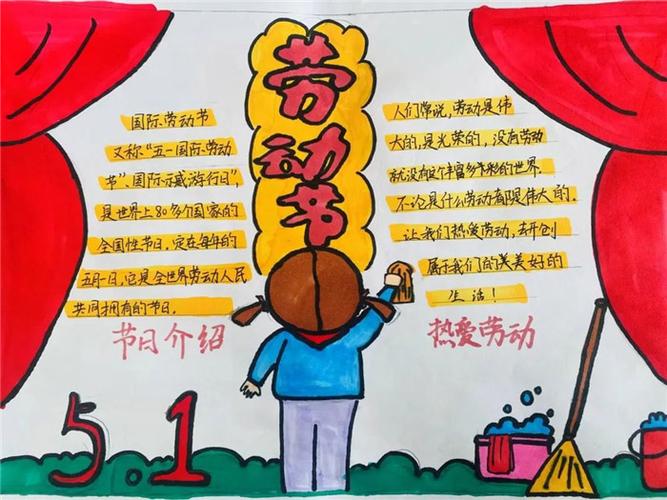 劳动节
国际劳动节
又称“五一国际劳动
节”、国际示威游行日”,
是世界上80多个国家的
全国性节日,定在每年的
五月一日,它是全世界劳动人民
共同拥有的节日。
节日介绍
人们常说,劳动是伟
大的,是光荣的,没有劳动
就没有这丰富多彩的世界.
不论是什么劳动都是伟大的.
让我们热爱劳动,去开创
属于我们的美好的
生活!
热爱劳动
5.1